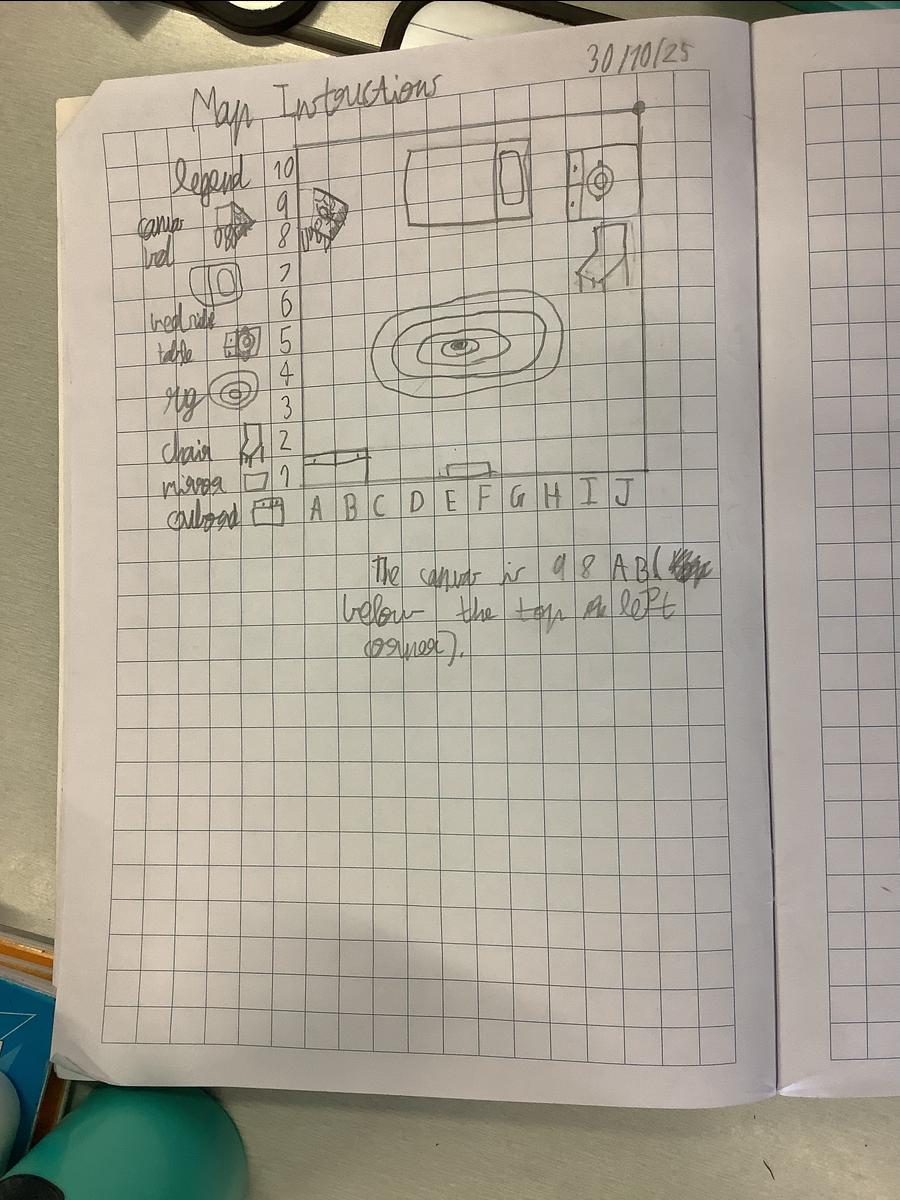 30/10/25
Map Instructions
legend
canvas
bed
bed side
table
rug
chair
mirror
10
9
8
7
6
5
4
3
2
1
A B C D E F G H I J
The canvas is 9 8 A B (
below the top left
corner).